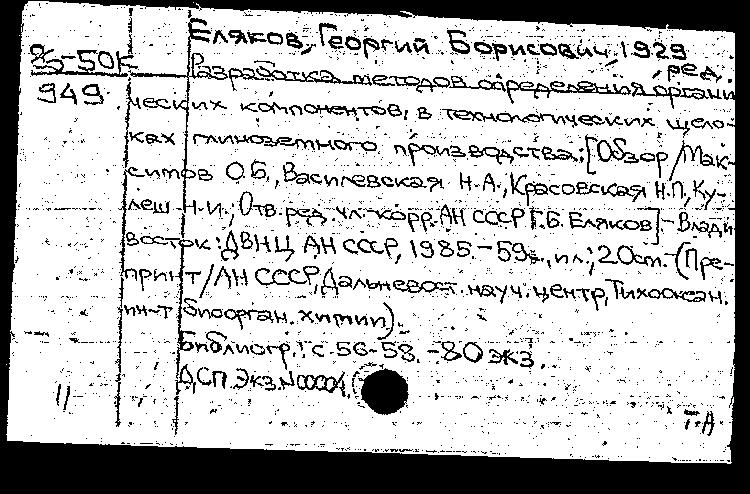 Еляков, Георгий Борисович, 1929
, ред.
85-50к Разработка методов определения органи
949 ческих компонентов в технологических щело-
ках глиноземного производства: [Обзор / Мак-
симов О.Б., Василевская Н.А., Красовская Н.П., Ку-
леш Н.И.; Отв. ред. чл.-корр. АН СССР Г.Б. Еляков]. - Влади
восток: ДВНЦ АН СССР, 1985. - 59 с., ил.; 20 см. - (Пре-
принт / АН СССР, Дальневост. науч. центр, Тихоокеан.
ин-т биоорган. химии).
Библиогр.: с. 56-58. - 80 экз.
ДСП. Экз. N 00004
11
Т.А